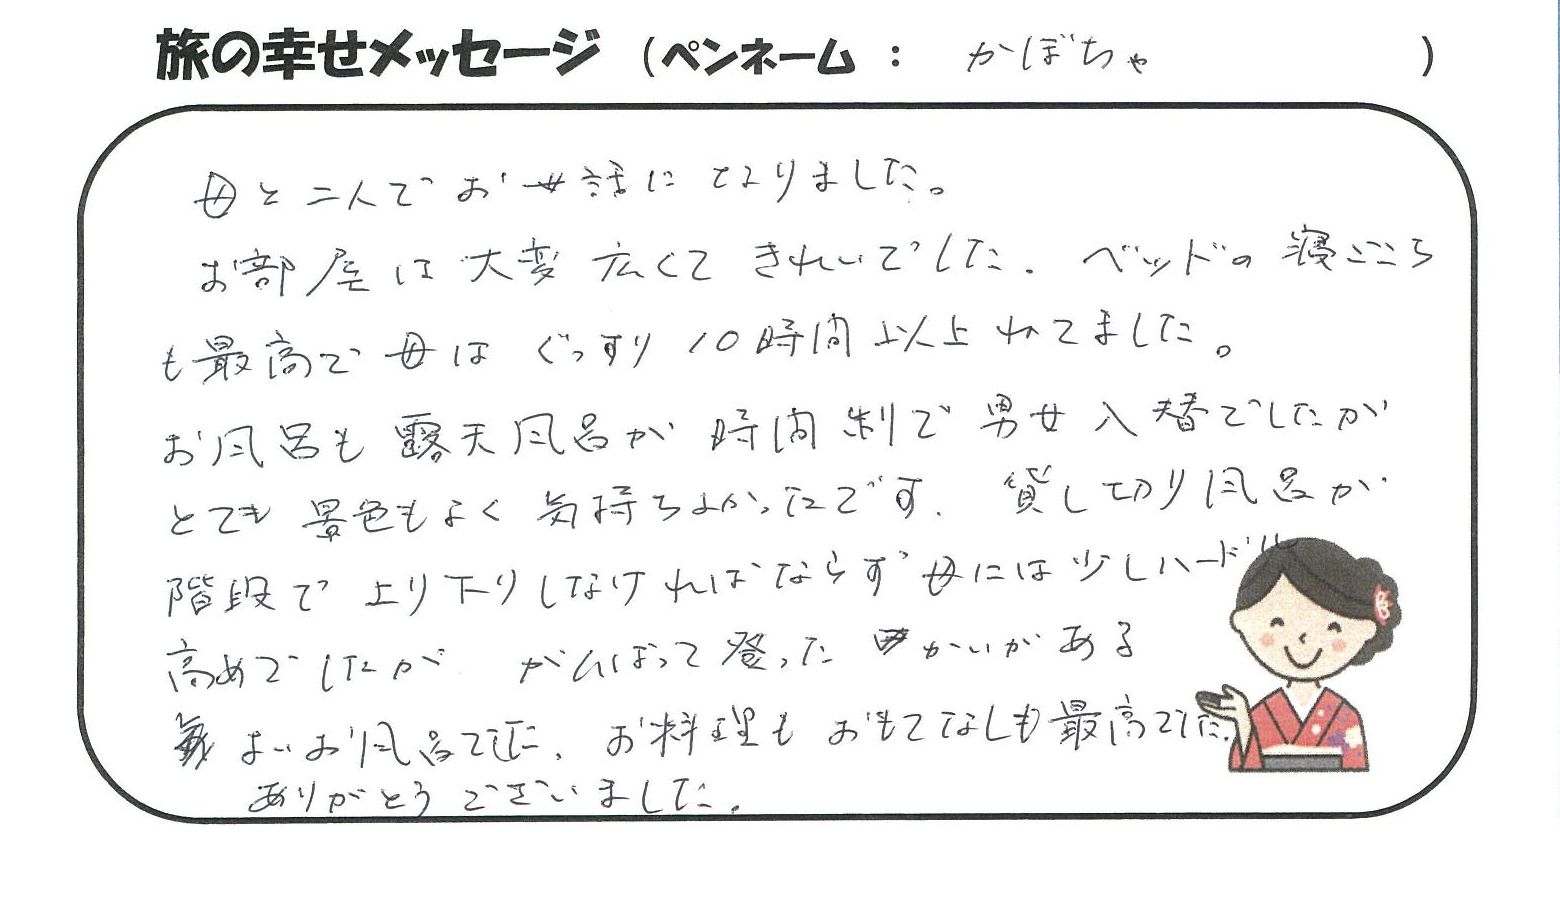 旅の幸せメッセージ (ペンネーム : かぼちゃ )
母と二人でお世話になりました。
お部屋は大変広くてきれいでした. ベッドの寝ごこち
も最高で母はぐっすり10時間以上ねてました。
お風呂も露天風呂が時間制で男女入替でしたが
とても景色もよく気持ちよかったです. 貸し切り風呂が
階段で上り下りしなければならず母には少しハードル
高めでしたが がんばって登った かいがある
よいお風呂でした. お料理もおもてなしも最高でした.
ありがとうございました.